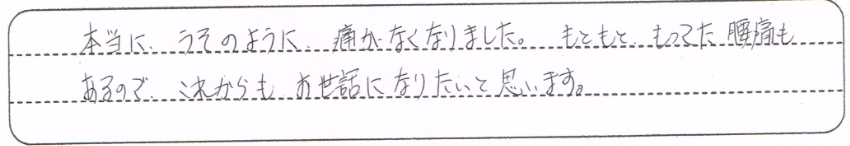 本当に、うそのように、痛がなくなりました。もともと、もってた腰痛も
あるので、これからもお世話になりたいと思います。